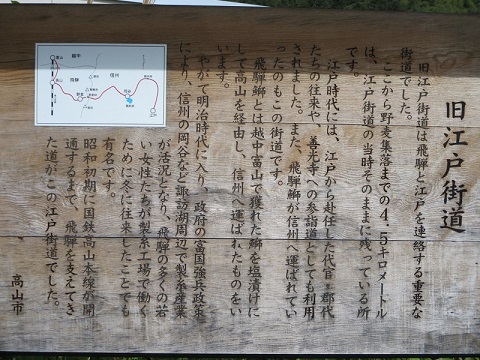 旧江戸街道
旧江戸街道は飛騨と江戸を連絡する重要な
街道でした。
ここから野麦集落までの4.5キロメートル
は、江戸街道の当時そのままに残っている所
です。
江戸時代には、江戸から赴任した代官・郡代
たちの往来や、善光寺への参詣道としても利用
されました。また、飛騨鰤が信州へ運ばれてい
ったのもこの街道です。
飛騨鰤とは越中富山で獲れた鰤を塩漬けに
して高山を経由し、信州へ運ばれたものをい
います。
やがて明治時代に入り、政府の富国強兵政策
により、信州の岡谷など諏訪湖周辺で製糸産業
が活況となり、飛騨の多くの若
い女性たちが製糸工場で働く
ために冬に往来したことでも
有名です。
昭和初期に国鉄高山本線が開
通するまで、飛騨を支えてき
た道がこの江戸街道でした。
高山市
越中
信州
飛騨
富山
高山